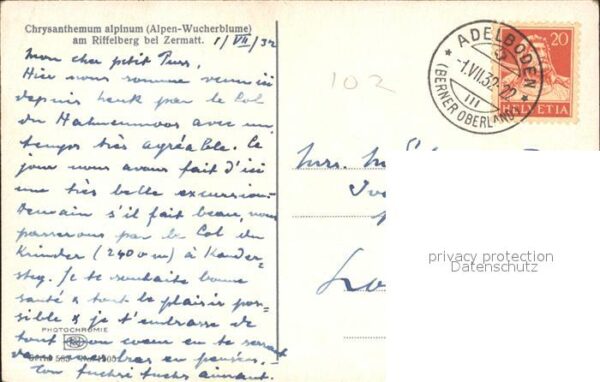 Chrysanthemum alpinum (Alpen-Wucherblume)
am Riffelberg bei Zermatt.
1/VII/32
Mon cher petit
Hier nous sommes venus ici
depuis Lenk par le Col
du Hahnenmoos avec un
temps très agréable. Ce
jour nous avons fait d'ici
une très belle excursion.
Demain s'il fait beau, nous
passerons par le Col du
(2400 m) à Kander-
steg. Je te souhaite bonne
santé & tout le plaisir pos-
sible & je t'embrasse de
tout mon coeur en te serrant
dans mes bras en pensées.
Ton aimant.
PHOTOCHROMIE
102
* ADELBODEN *
-1.VII.32-22
III
(BERNER OBERLAND)
20
HELVETIA
Mrs.
privacy protection
Datenschutz